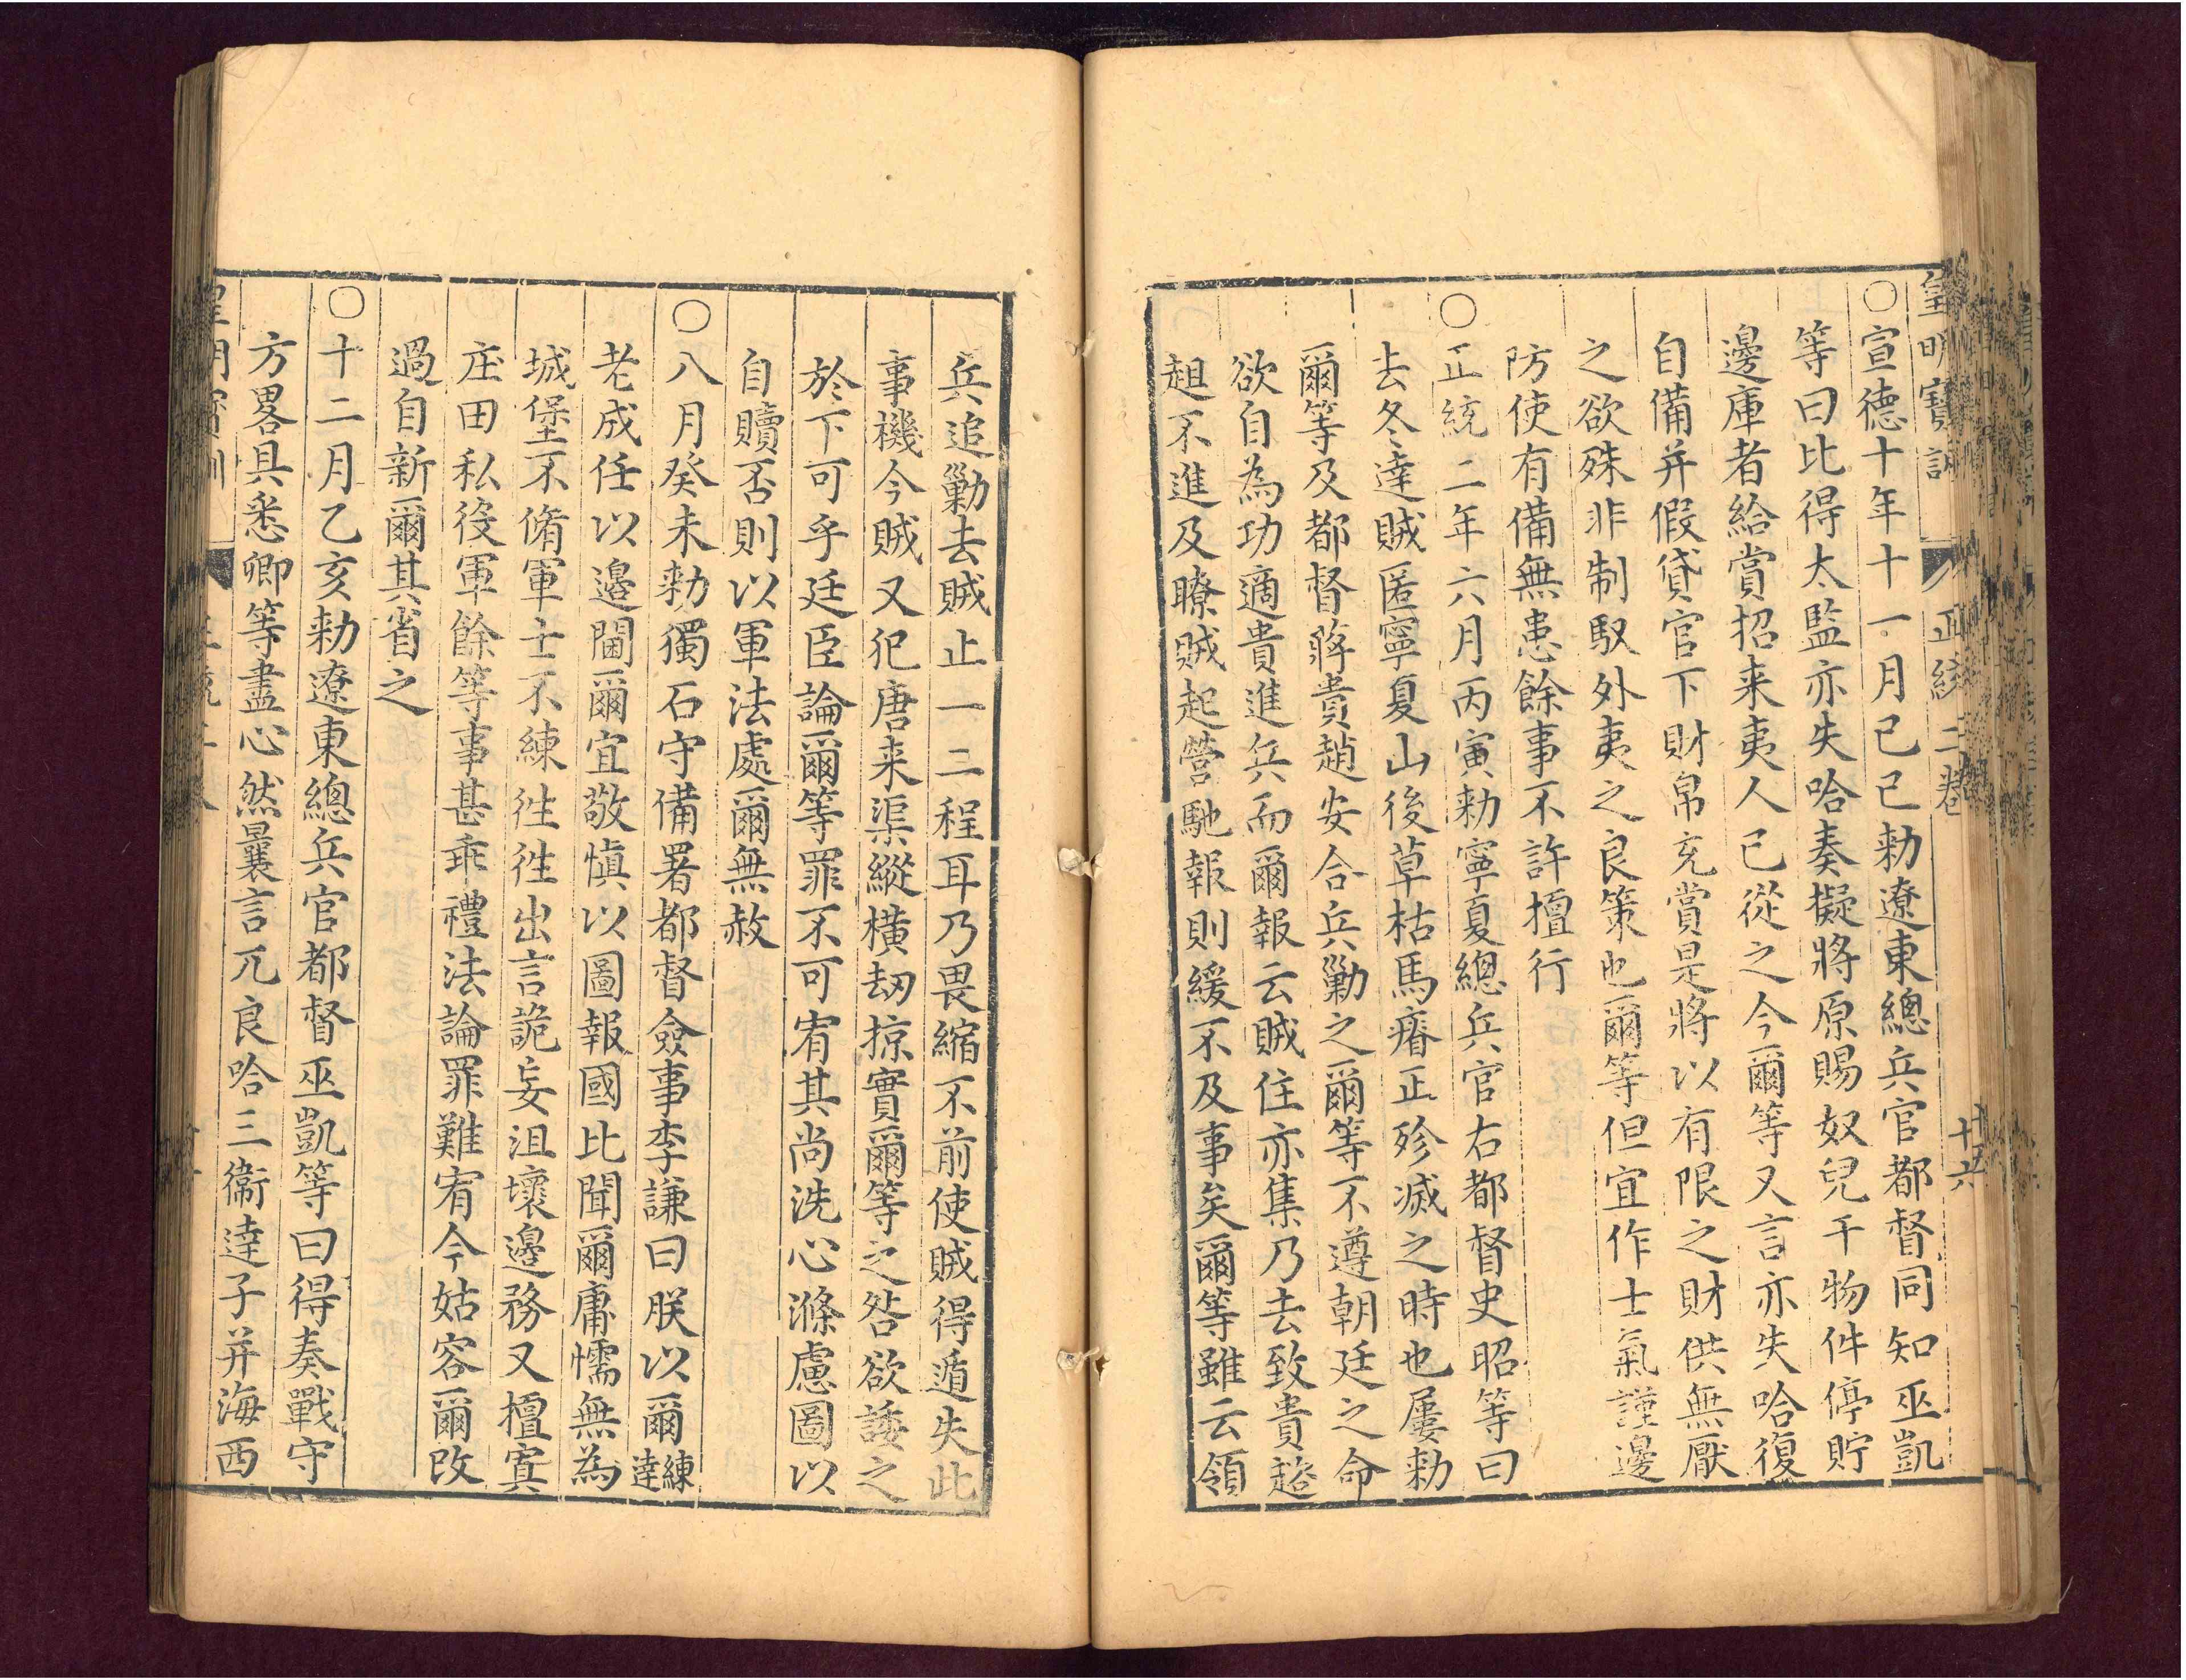 皇明寶訓 正統二卷 十六
○宣德十年十一月己巳勑遼東總兵官都督同知巫凱
等曰比得太監亦失哈奏擬將原賜奴兒干物件停貯
邊庫者給賞招来夷人已從之今爾等又言亦失哈復
自備并假貸官下財帛充賞是將以有限之財供無厭
之欲殊非制馭外夷之良策也爾等但宜作士氣謹邊
防使有備無患餘事不許擅行
○正統二年六月丙寅勑寧夏總兵官右都督史昭等曰
去冬達賊匿寧夏山後草枯馬瘠正殄滅之時也屢勑
爾等及都督蔣貴趙安合兵勦之爾等不遵朝廷之命
欲自為功適貴進兵而爾報云賊住亦集乃去致貴趦
趄不進及瞭賊起營馳報則緩不及事矣爾等雖云領
兵追勦去賊止一二程耳乃畏縮不前使賊得遁失此
事機今賊又犯唐来渠縱横刼掠實爾等之咎欲諉之
於下可乎廷臣論爾等罪不可宥其尚洗心滌慮圖以
自贖否則以軍法處爾無赦
○八月癸未勑獨石守備署都督僉事李謙曰朕以爾練達
老成任以邊閫爾宜敬慎以圖報國比聞爾庸懦無為
城堡不脩軍士不練徃徃出言詭妄沮壞邊務又擅寘
庄田私役軍餘等事甚乖禮法論罪難宥今姑容爾改
過自新爾其省之
○十二月乙亥勑遼東總兵官都督巫凱等曰得奏戰守
方畧具悉卿等盡心然曩言兀良哈三衞達子并海西